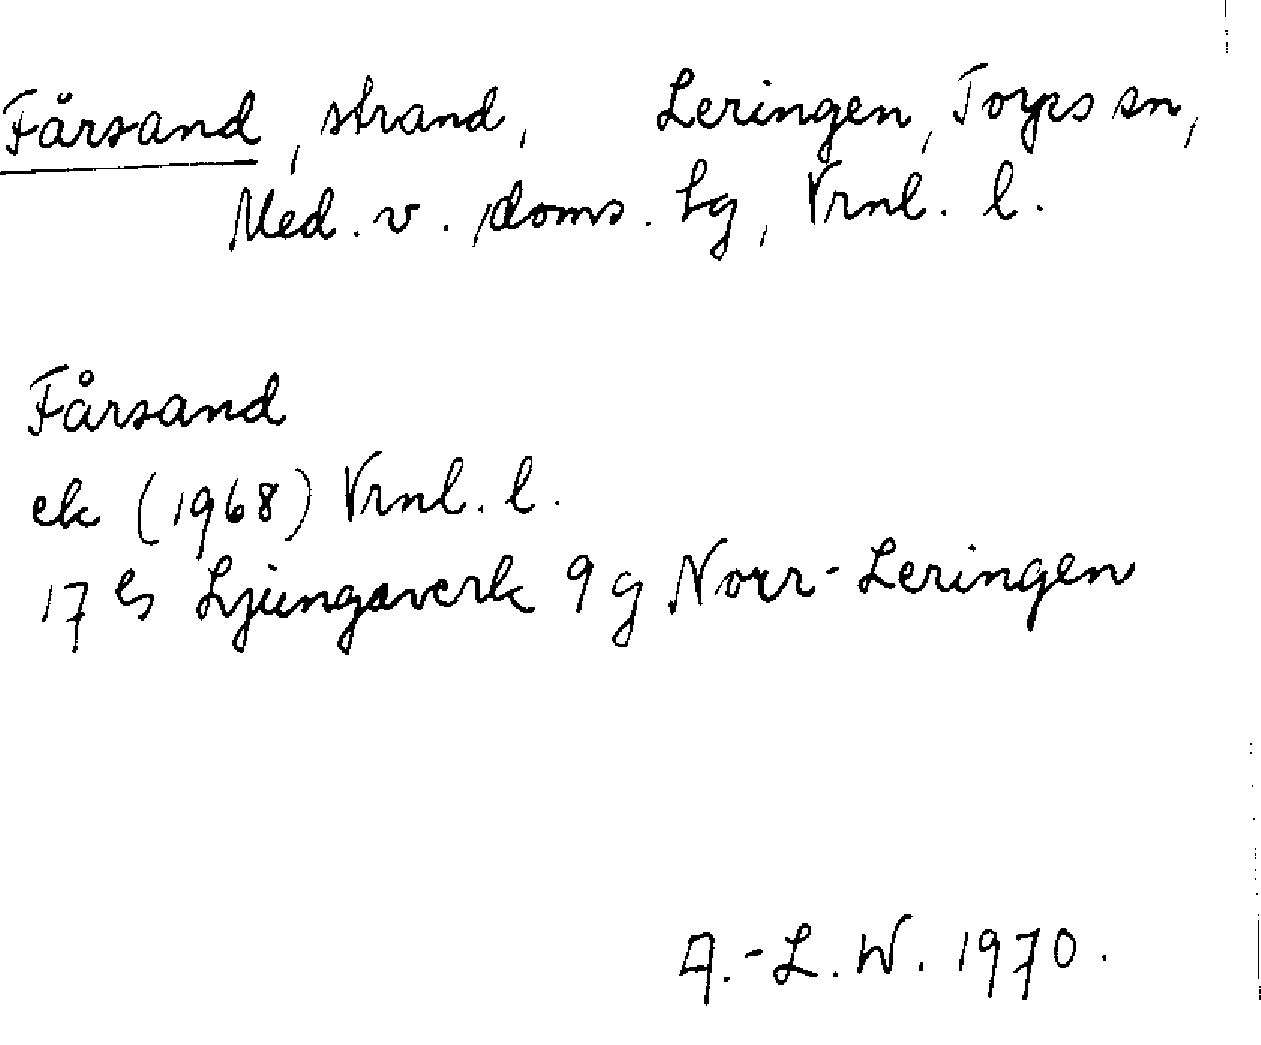 Fårsand, strand, Leringen, Torps sn,
Med. v. doms. hg, Vrnl. l.
Fårsand
ek (1968) Vrnl. l.
17 Ljungaverk 9 g Norr-Leringen
A.-L. W. 1970.